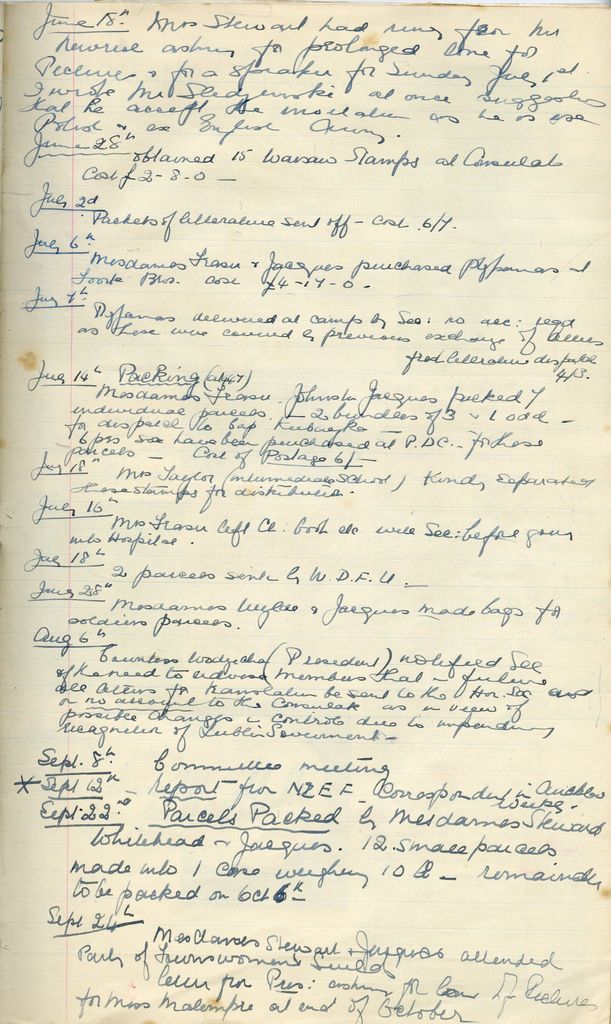 June 18th Mrs Stewart had rung from Mr
asking for prolonged time for
Pictures & for a speaker for Sunday July 1st
I wrote Mr at once suggesting
that he accept the invitation as he is
Polish & ex English Army.
June 28th obtained 15 Warsaw Stamps at Consulate
Cost £2-8-0 —
July 2d
Packets of literature sent off - Cost 6/7.
July 6th
Mesdames Fraser & Jacques purchased Pyjamas at
Bros. cost £4-17-0.
July 7th
Pyjamas delivered at camp by Sec: no acc:
as these were covered by previous exchange of letters
literature dispatch
4/3.
July 14th Packing
Mesdames Fraser, Johnston Jacques packed 7
individual parcels - 2 bundles of 3 & 1 odd -
for dispatch to Cap
6 prs sox have been purchased at P.D.C. - for these
parcels - Cost of Postage 6/-
July 18th Mrs Taylor (Intermediate School) kindly separated
these stamps for distribution.
July 16th
Mrs Fraser left Ch: book etc with Sec: before going
into Hospital.
July 18th
2 parcels sent by W.D.F.U. —
July 28th
Mesdames & Jacques made bags for
soldiers parcels.
Aug 6th
Countess Wodzicka (President) notified Sec
of the need to advise members that in future
all letters for translation be sent to the Hon. Sec and
on no account to the Consulate as in view of
possible changes in controls due to impending
recognition of Lublin Government —
Sept. 8th Committee meeting
x Sept 12th - report from NZEF Correspondent in Auckland
Weekly -
Sept. 22nd Parcels Packed by Mesdames Steward
Whitehead & Jacques. 12 small parcels
made into 1 case weighing 10 lb — remainder
to be packed on Oct 6th
Sept 24th
Mesdames Stewart & Jacques attended
Party of Townswomen's Guild
letter from Pres: asking for loan of Pictures
for Miss Malempre at end of October